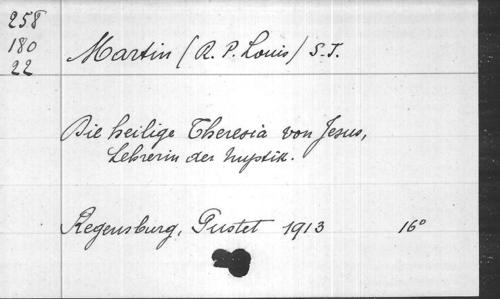 258
180
22
Martin (R. P. Louis) S. J.
Die heilige Theresia von Jesus,
Lehrerin der Mystik.
Regensburg, Pustet 1913 16°